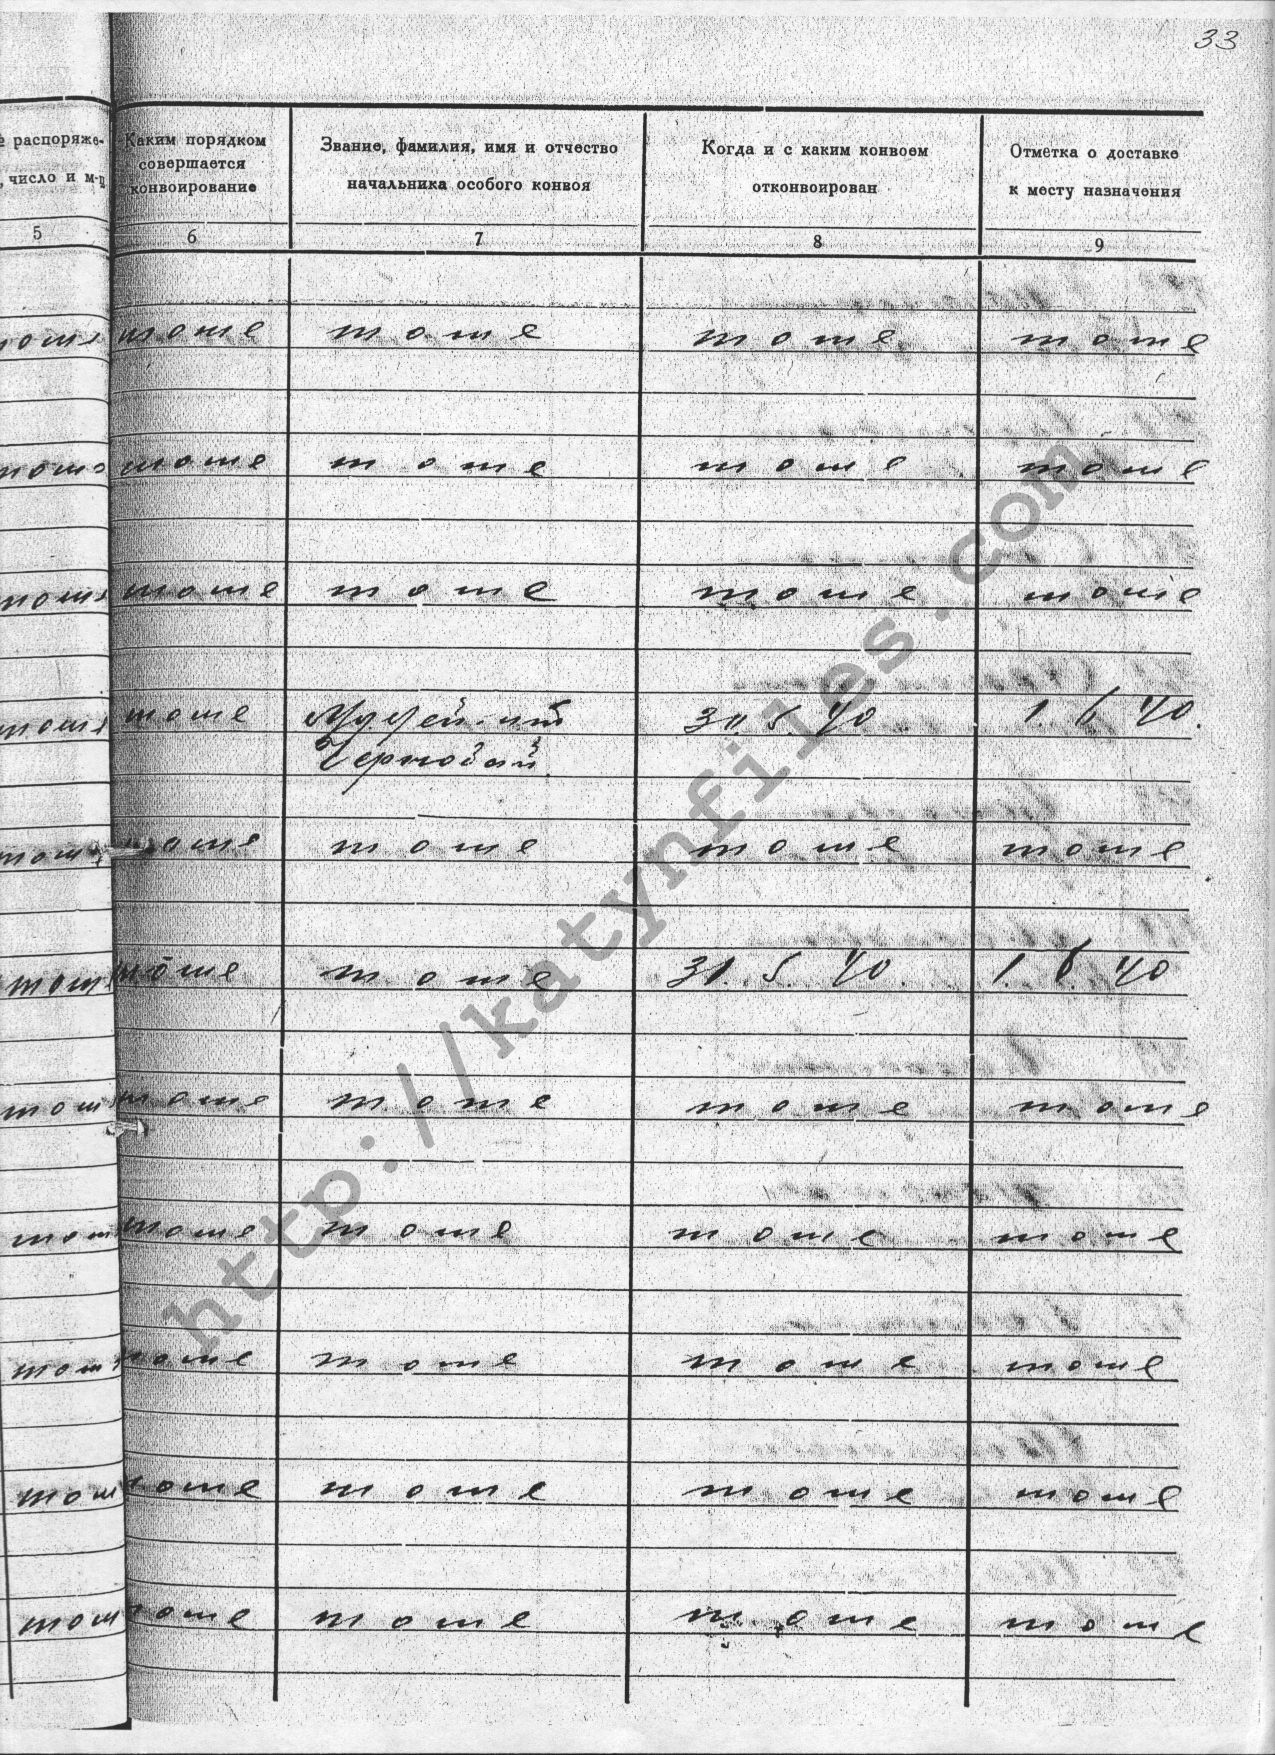 33
распоряже-
, число и м-ц
5
Каким порядком
совершается
конвоирование
6
Звание, фамилия, имя и отчество
начальника особого конвоя
7
Когда и с каким конвоем
отконвоирован
8
Отметка о доставке
к месту назначения
9
тоже тоже тоже тоже тоже
тоже тоже тоже тоже тоже
тоже тоже тоже тоже тоже
тоже тоже 5. 40 1. 6. 40.
тоже тоже тоже тоже тоже
тоже тоже тоже 31. 5. 40. 1. 6. 40
тоже тоже тоже тоже тоже
тоже тоже тоже тоже тоже
тоже тоже тоже тоже тоже
тоже тоже тоже тоже тоже
тоже тоже тоже тоже тоже
http://katynfiles.com